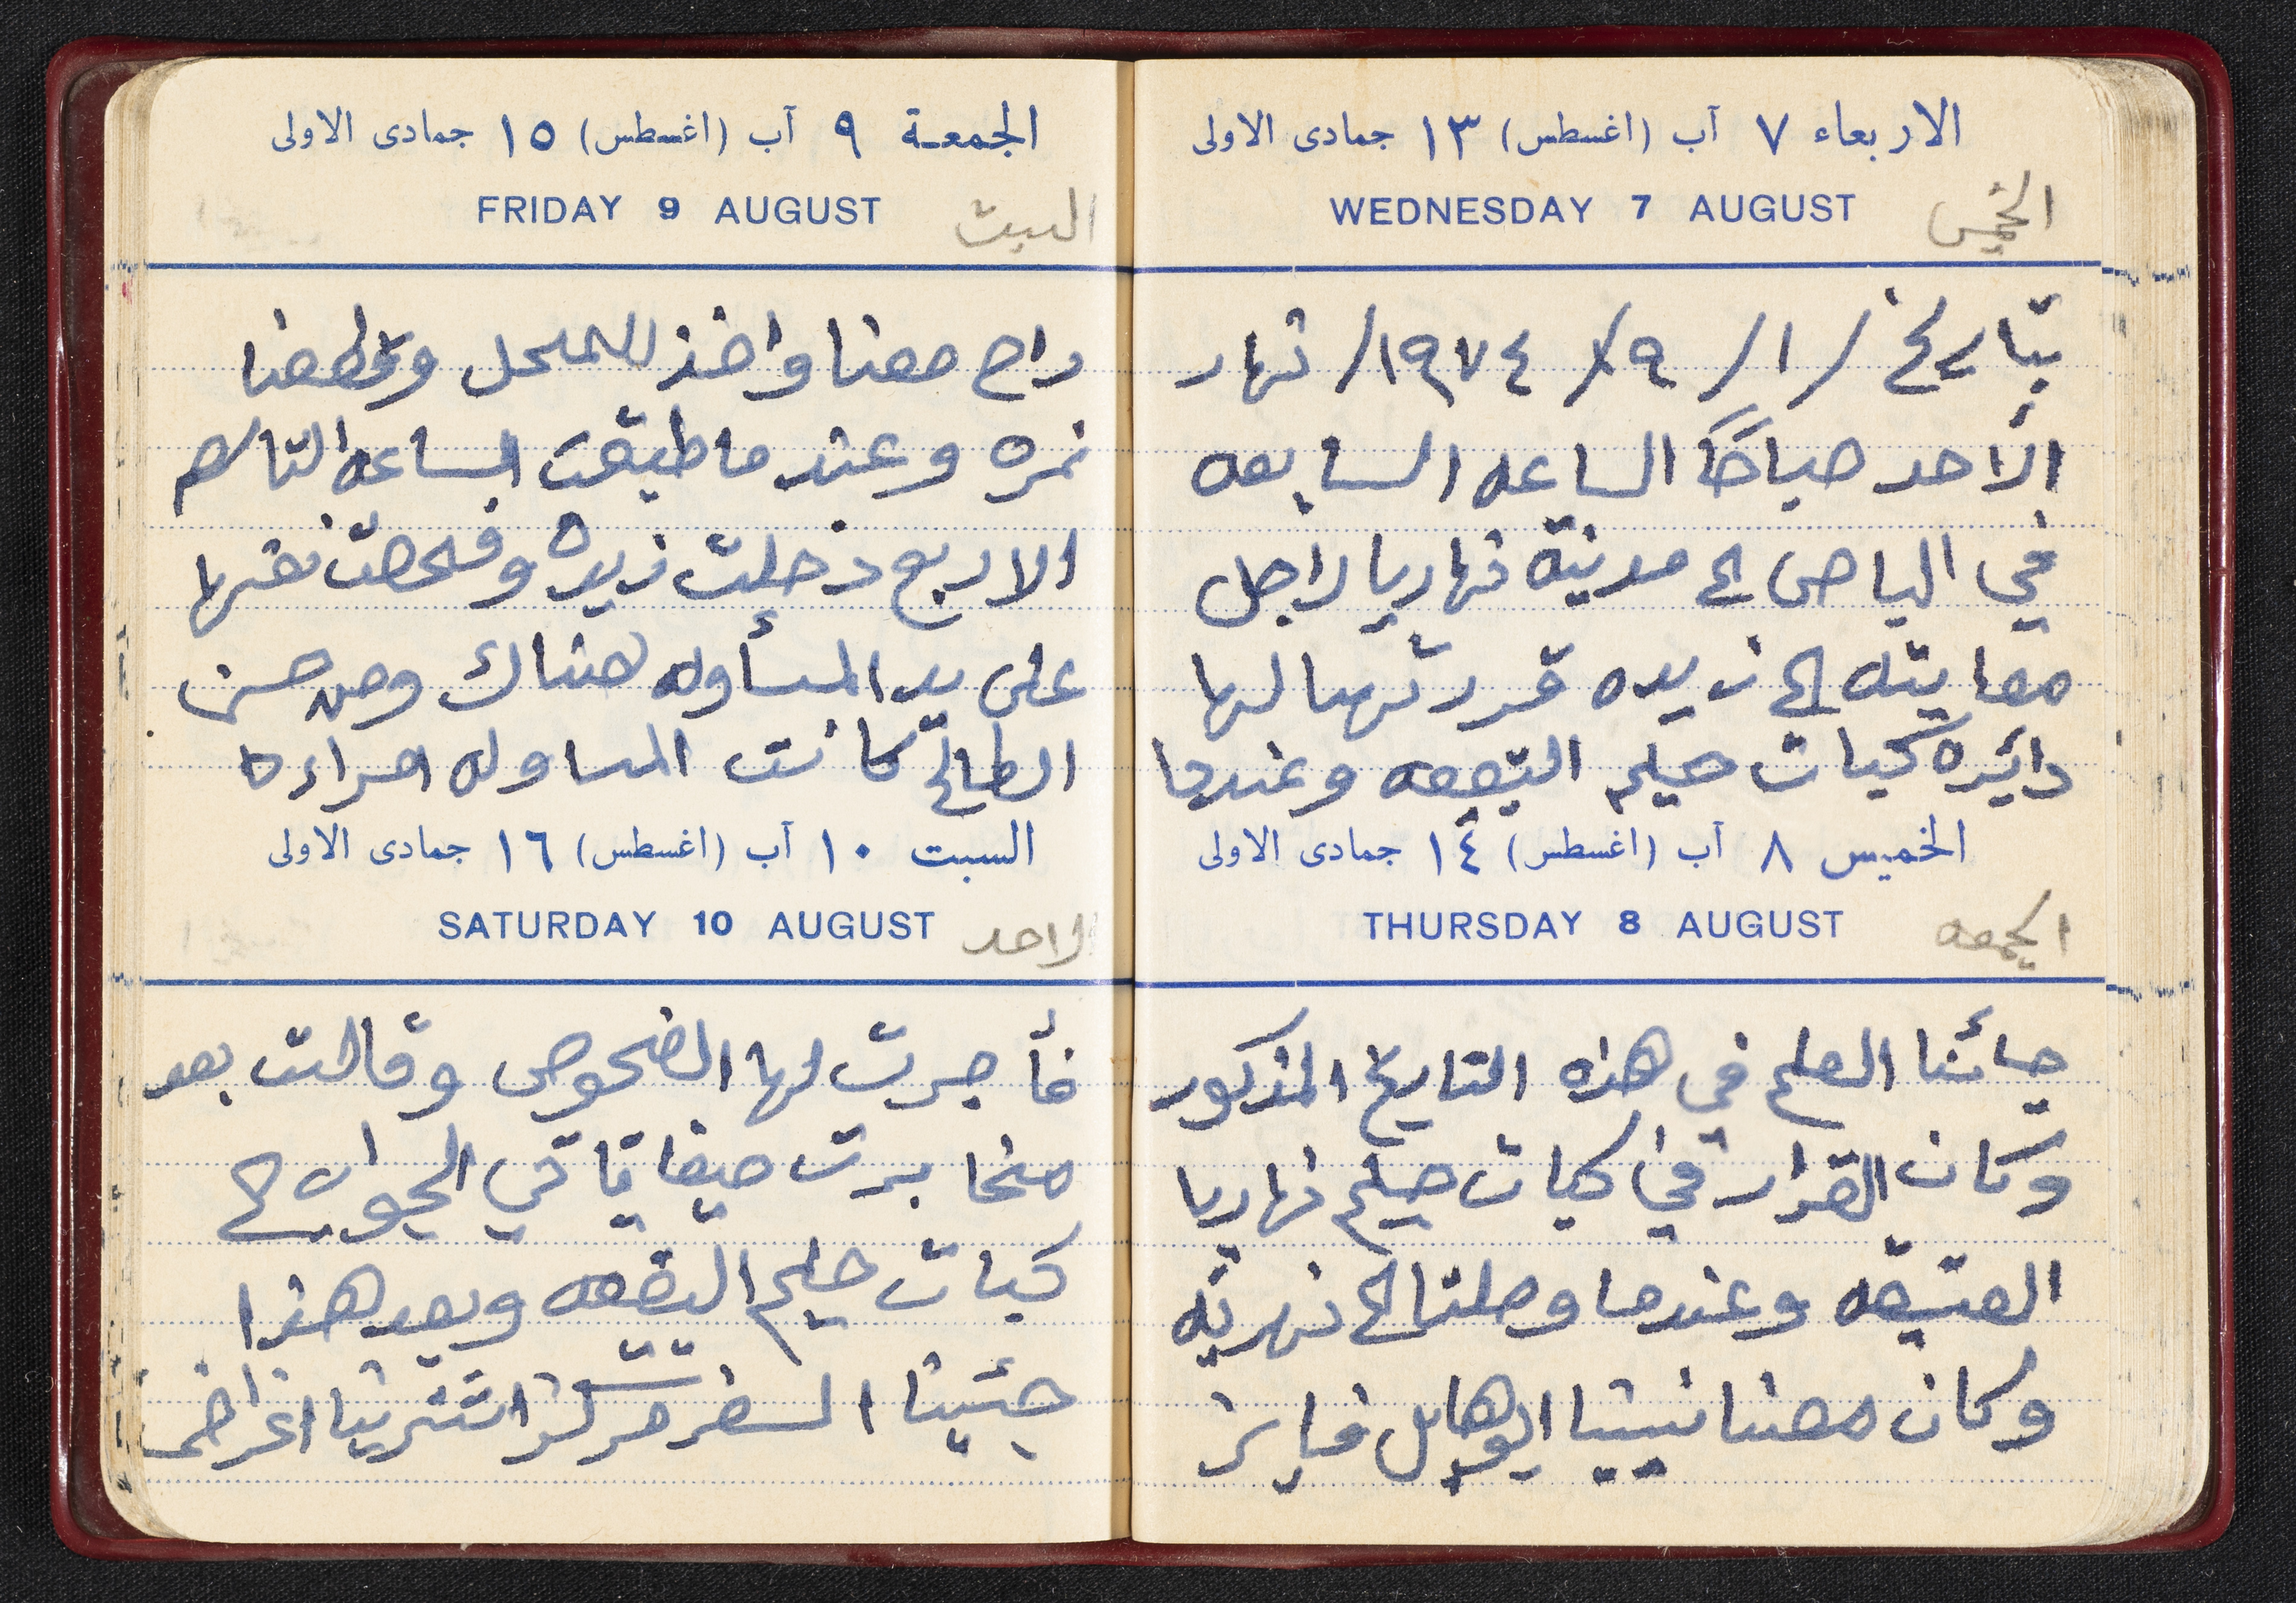 الاربعاء ٧ آب (اغسطس) ١٣ جمادى الاولى
WEDNESDAY 7 AUGUST
الخميس
بتاريخ /١/ ٩/ ١٩٧٤/ نهار
الأحد صباحًا الساعه السابعه
في الباص الى مدينة نهاريا لاجل
معاينه الى زيده قررتهما لها
دائيره كبات حيلم القيمه وعندما
الخميس ٨ آب (اغسطس) ١٤ جمادى الاولى
THURSDAY 8 AUGUST
الجمعه
جائنا العلم في هذه التاريخ المذكور
وكان القرار في كبات حيلم نهاريا
العتيقه وعندما وصلنا الى نهريه
وكان معنا نيبنا فايز
الجمعة ٩ آب (اغسطس) ١٥ جمادى الاولى
FRIDAY 9 AUGUST
السبت
راح معنا واخذ للمحل وقطعنا
نمره وعندما طبقت الساعه التاسعه
الاربع دخلت زيده وفحصت نفسها
على يد المسأوله هناك ومن حسن
الطالح كانت المساوله امراءه
السبت ١٠ آب (اغسطس) ١٦ جمادى الاولى
SATURDAY 10 AUGUST
الاحد
فأجرت لها الفحوص وقالت بعد
مخابرت حيفا يأتي الجواب الى
كبات حيلم البقعه وبعد هذا
جئينا السفر مركز اشترينا اغراض